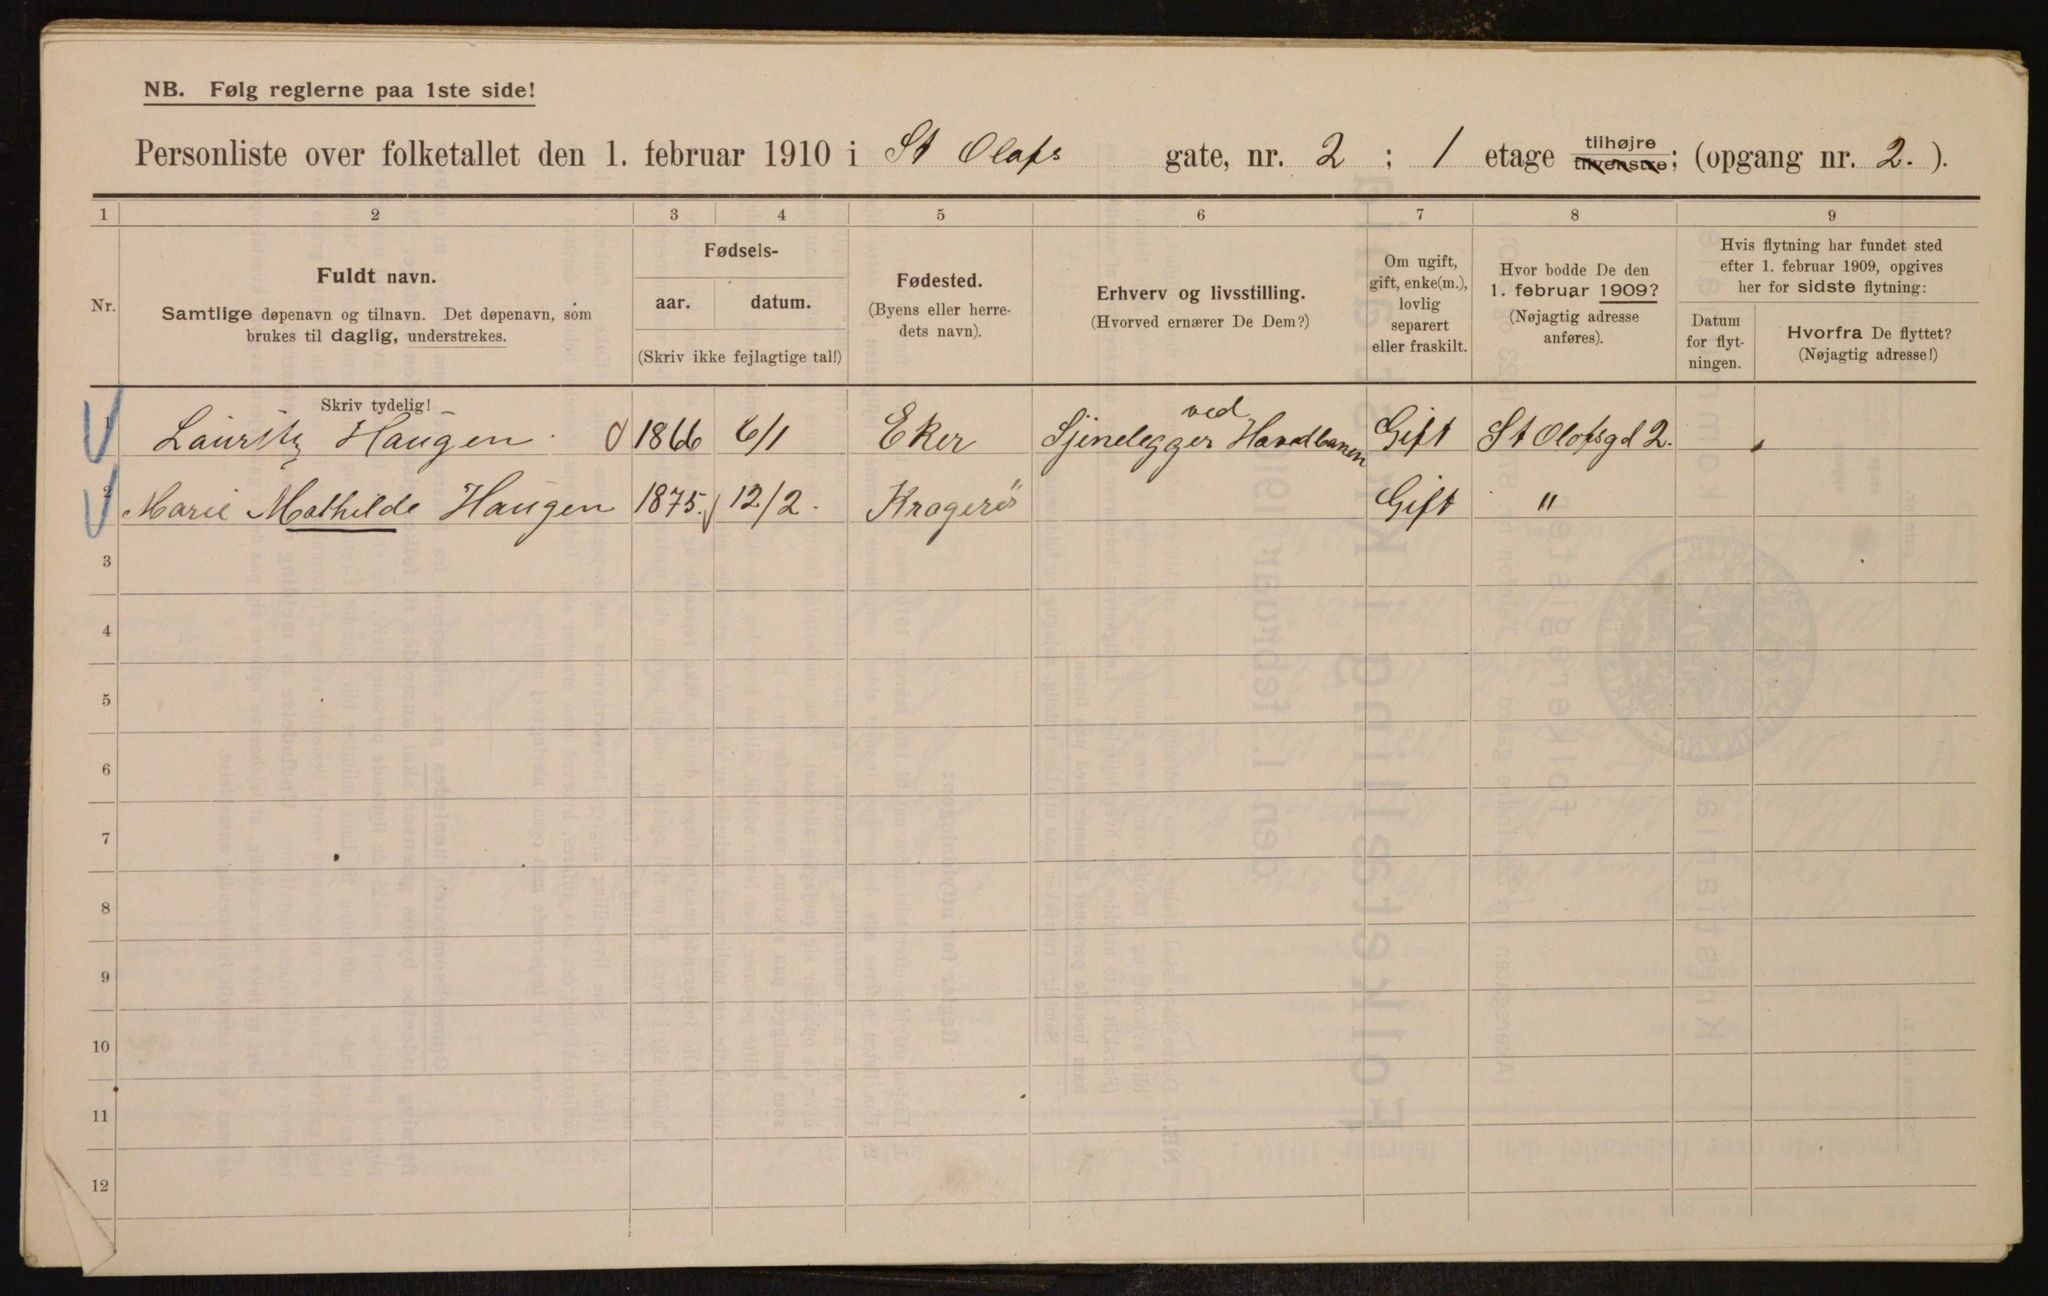 NB. Følg reglerne paa 1ste side!
Personliste over folketallet den 1. februar 1910 i St Olafs gate, nr. 2 ; 1 etage tilhøjre tilvenstre; (opgang nr. 2. ).
1 2 3 4 5 6 7 8 9
Nr.
Fuldt navn.
Samtlige døpenavn og tilnavn. Det døpenavn, som
brukes til daglig, understrekes.
Fødsels-
aar. datum.
(Skriv ikke fejlagtige tal!)
Fødested.
(Byens eller herre-
dets navn).
Erhverv og livsstilling.
(Hvorved ernærer De Dem?)
Om ugift,
gift, enke(m.),
lovlig
separert
eller fraskilt.
Hvor bodde De den
1. februar 1909?
(Nøjagtig adresse
anføres).
Hvis flytning har fundet sted
efter 1. februar 1909, opgives
her for sidste flytning:
Datum
for flyt-
ningen.
Hvorfra De flyttet?
(Nøjagtig adresse!)
Skriv tydelig!
1 Lauritz Haugen. 1866 6/1 Eker Sjinelegger ved Hovedbanen Gift St Olafsgd 2.
2 Marie Mathilde Haugen 1875. 12/2. Kragerö Gift "
3
4
5
6
7
8
9
10
11
12